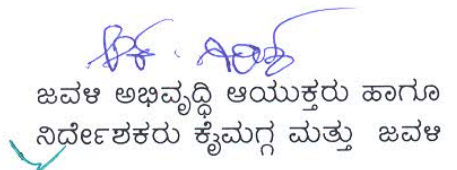 ಜವಳಿ ಅಭಿವೃದ್ಧಿ ಆಯುಕ್ತರು ಹಾಗೂ
ನಿರ್ದೇಶಕರು ಕೈಮಗ್ಗ ಮತ್ತು ಜವಳಿ